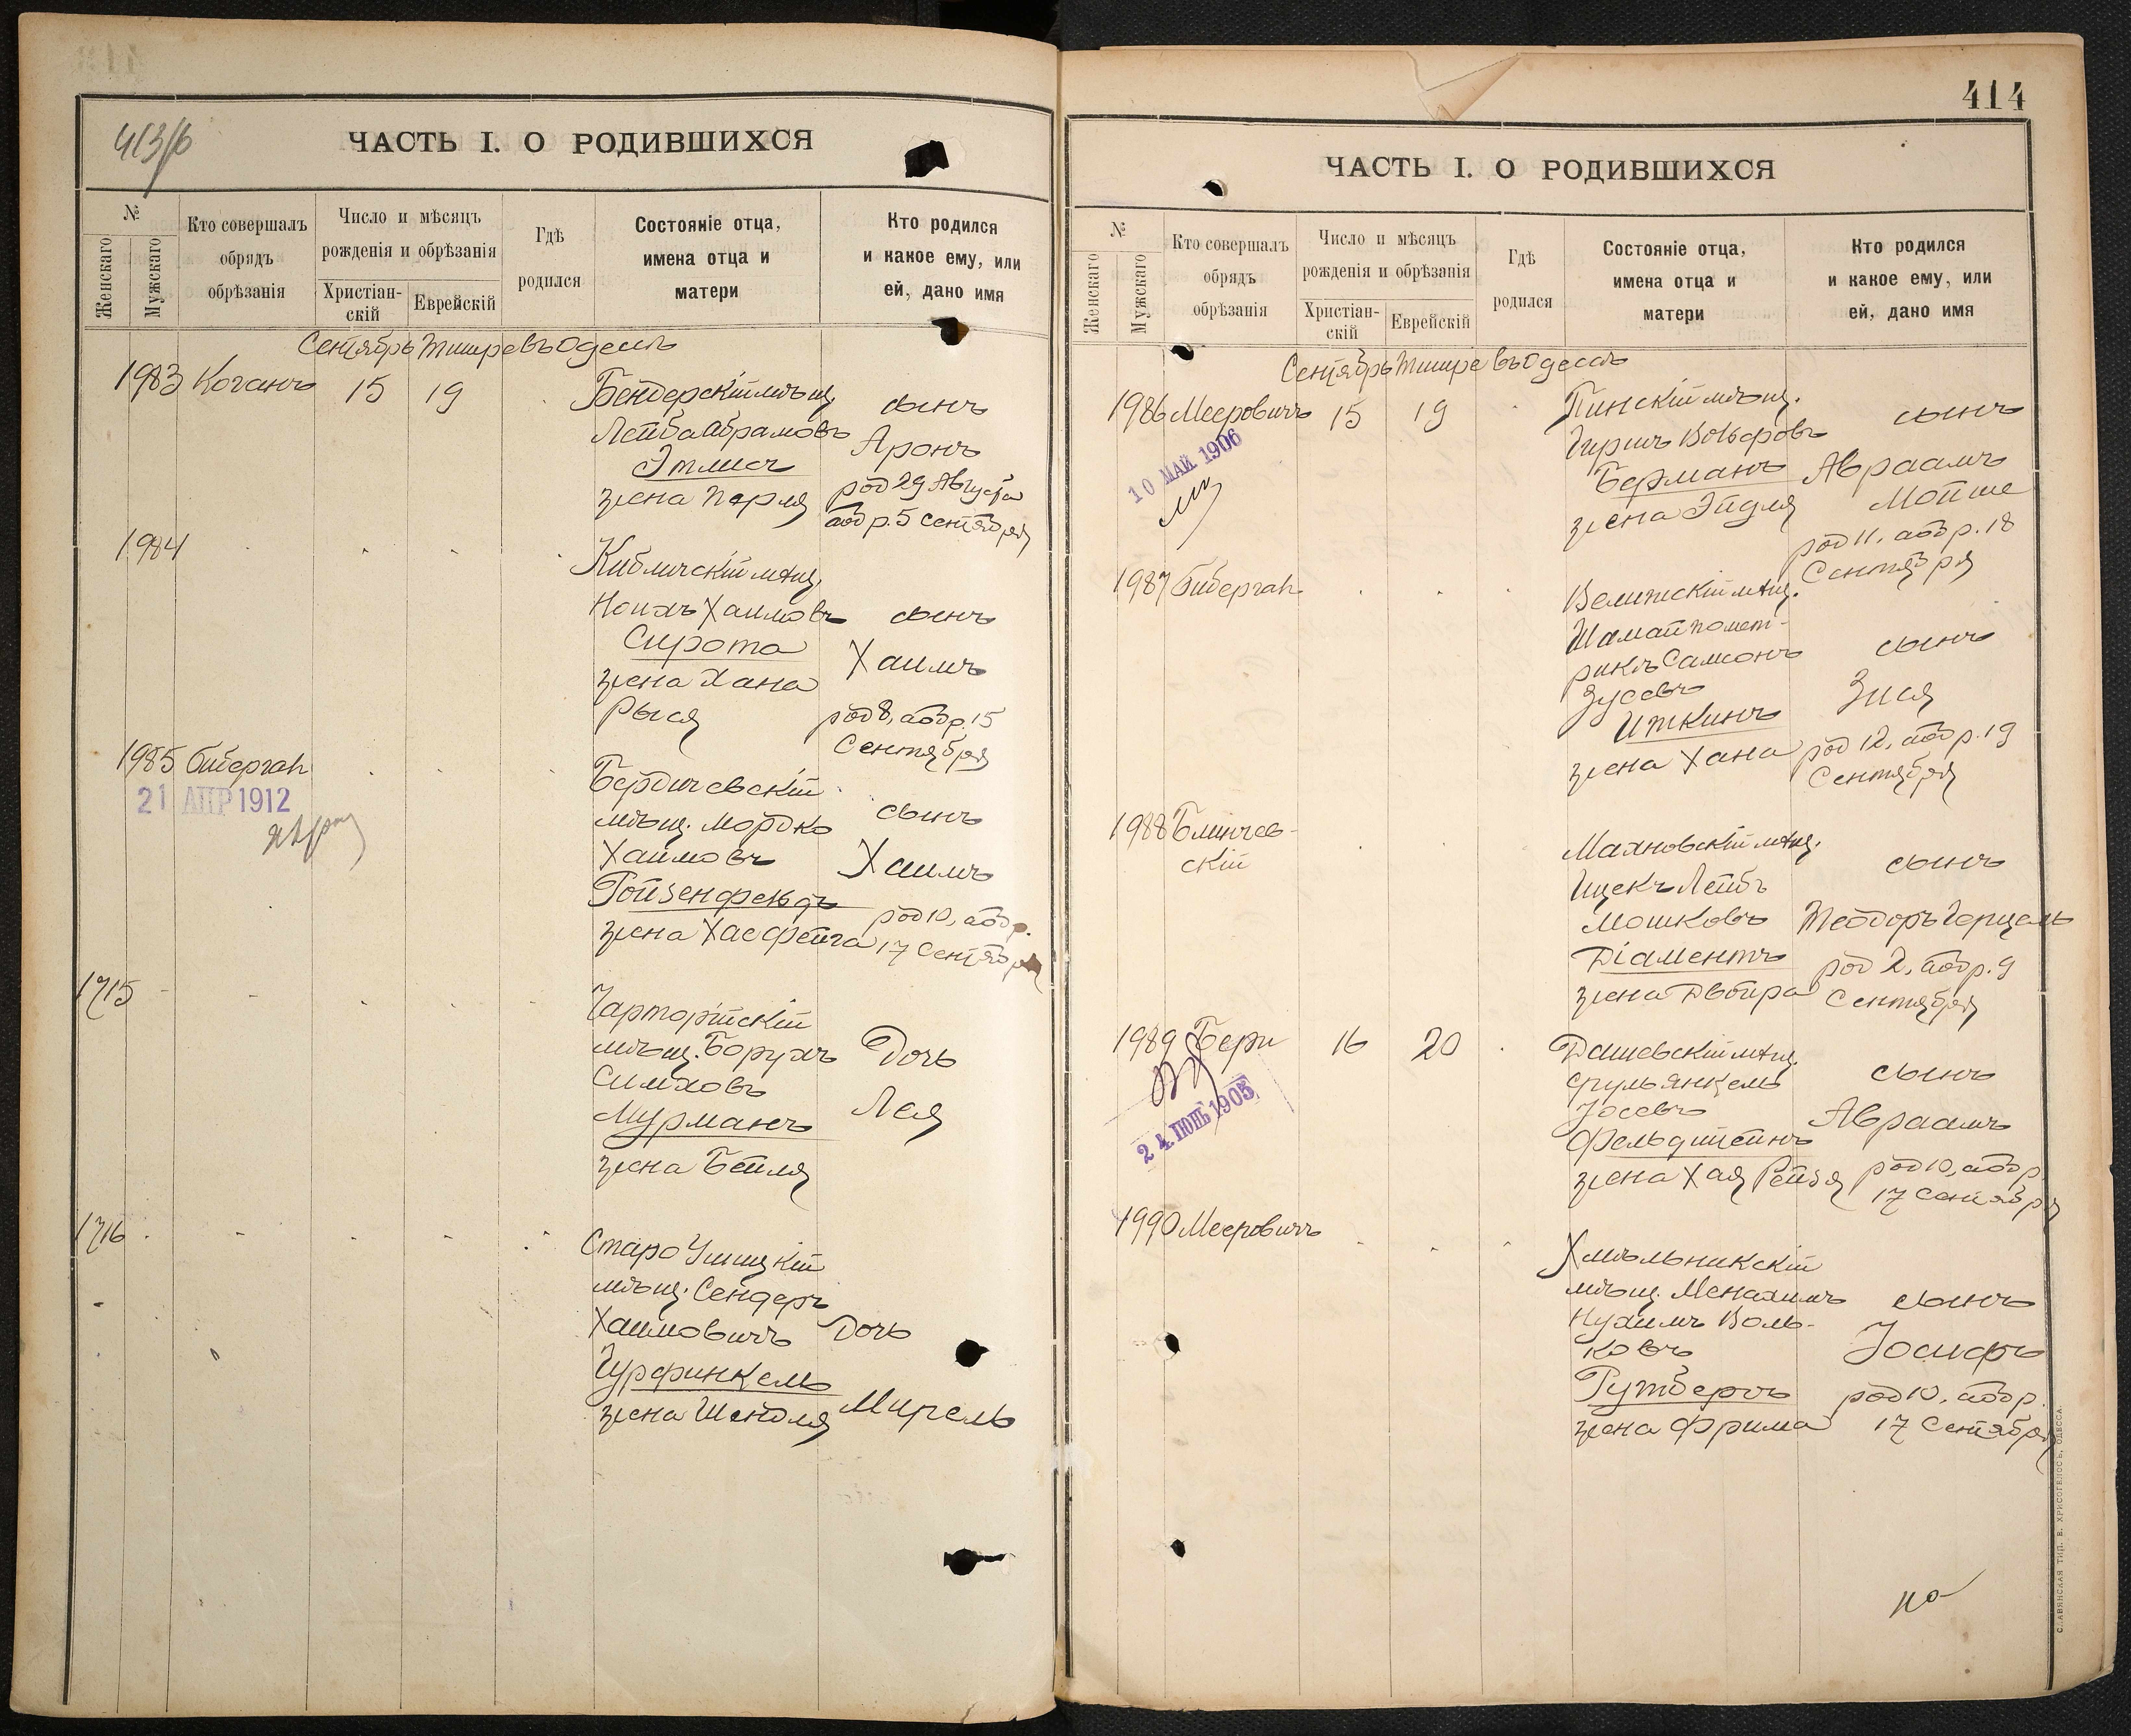 413/б
ЧАСТЬ I. О РОДИВШИХСЯ
№
Женскаго
Мужскаго
Кто совершалъ
обрядъ
обрѣзанія
Число и мѣсяцъ
рожденія и обрѣзанія
Христіан-
скій
Еврейскій
Гдѣ
родился
Состояніе отца,
имена отца и
матери
Кто родился
и какое ему, или
ей, дано имя
Сентябрь Тишре въ Одессѣ
1983 Коганъ 15 19
Бендерскій мѣщ.
Лейба Абрамовъ
Этлисъ
жена Перля
сынъ
Аронъ
род 29 Августа
аобр. 5 Сентября
1984
Кибличскій мѣщ.
Ноихъ Хаимовъ
Сирота
жена Хана
Рыся
сынъ
Хаимъ
род 8, аобр. 15
Сентября
1985 Бибергал
21 АПР 1912
Бердичевскій
мѣщ. Мордко
Хаимовъ
Гойзенфельдъ
жена Хае Фейга
сынъ
Хаимъ
род 10, аобр.
17 Сентября
1715
Чарторійскій
мѣщ. Борухъ
Симховъ
Мурманъ
жена Бейля
Дочь
Лея
1716
Старо Ушицкій
мѣщ. Сендеръ
Хаимовичъ
Гурфинкель
жена Шендля
Дочь
Мирель
414
ЧАСТЬ I. О РОДИВШИХСЯ
№
Женскаго
Мужскаго
Кто совершалъ
обрядъ
обрѣзанія
Число и мѣсяцъ
рожденія и обрѣзанія
Христіан-
скій
Еврейскій
Гдѣ
родился
Состояніе отца,
имена отца и
матери
Кто родился
и какое ему, или
ей, дано имя
Сентябрь Тишре въ Одессѣ
1986 Мееровичъ 15 19
10 МАЙ 1906
Пинскій мѣщ.
Гиршъ Вольфовъ
Берманъ
жена Эйдля
сынъ
Авраамъ
Мойше
род 11, аобр. 18
Сентября
1987 Бибергал
Велижскій мѣщ.
Шамай
Самсонъ
Зусевъ
Иткинъ
жена Хана
сынъ
Зися
род 12, аобр. 19
Сентября
1988 Блинчев-
скій
Маяновскій мѣщ.
Ицекъ Лейбъ
Мошковъ
Діаментъ
жена Двойра
сынъ
Теодоръ Герцель
род 2, аобр. 9
Сентября
1989 Бери 16 20
24 ІЮНЬ 1905
Дашевскій мѣщ.
Сруль Янкель
Іосевъ
Фельдштейнъ
жена Хая Рейзя
сынъ
Авраамъ
род 10, аобр
17 Сентября
1990 Мееровичъ
Хмѣльникскій
мѣщ. Менахимъ
Нухимъ Воль-
ковъ
Гутбергъ
жена Фрима
сынъ
Іосифъ
род 10, аобр.
17 Сентября
СЛАВЯНСКАЯ ТИП. Е. ХРИСОГЕЛОСЪ, ОДЕССА.